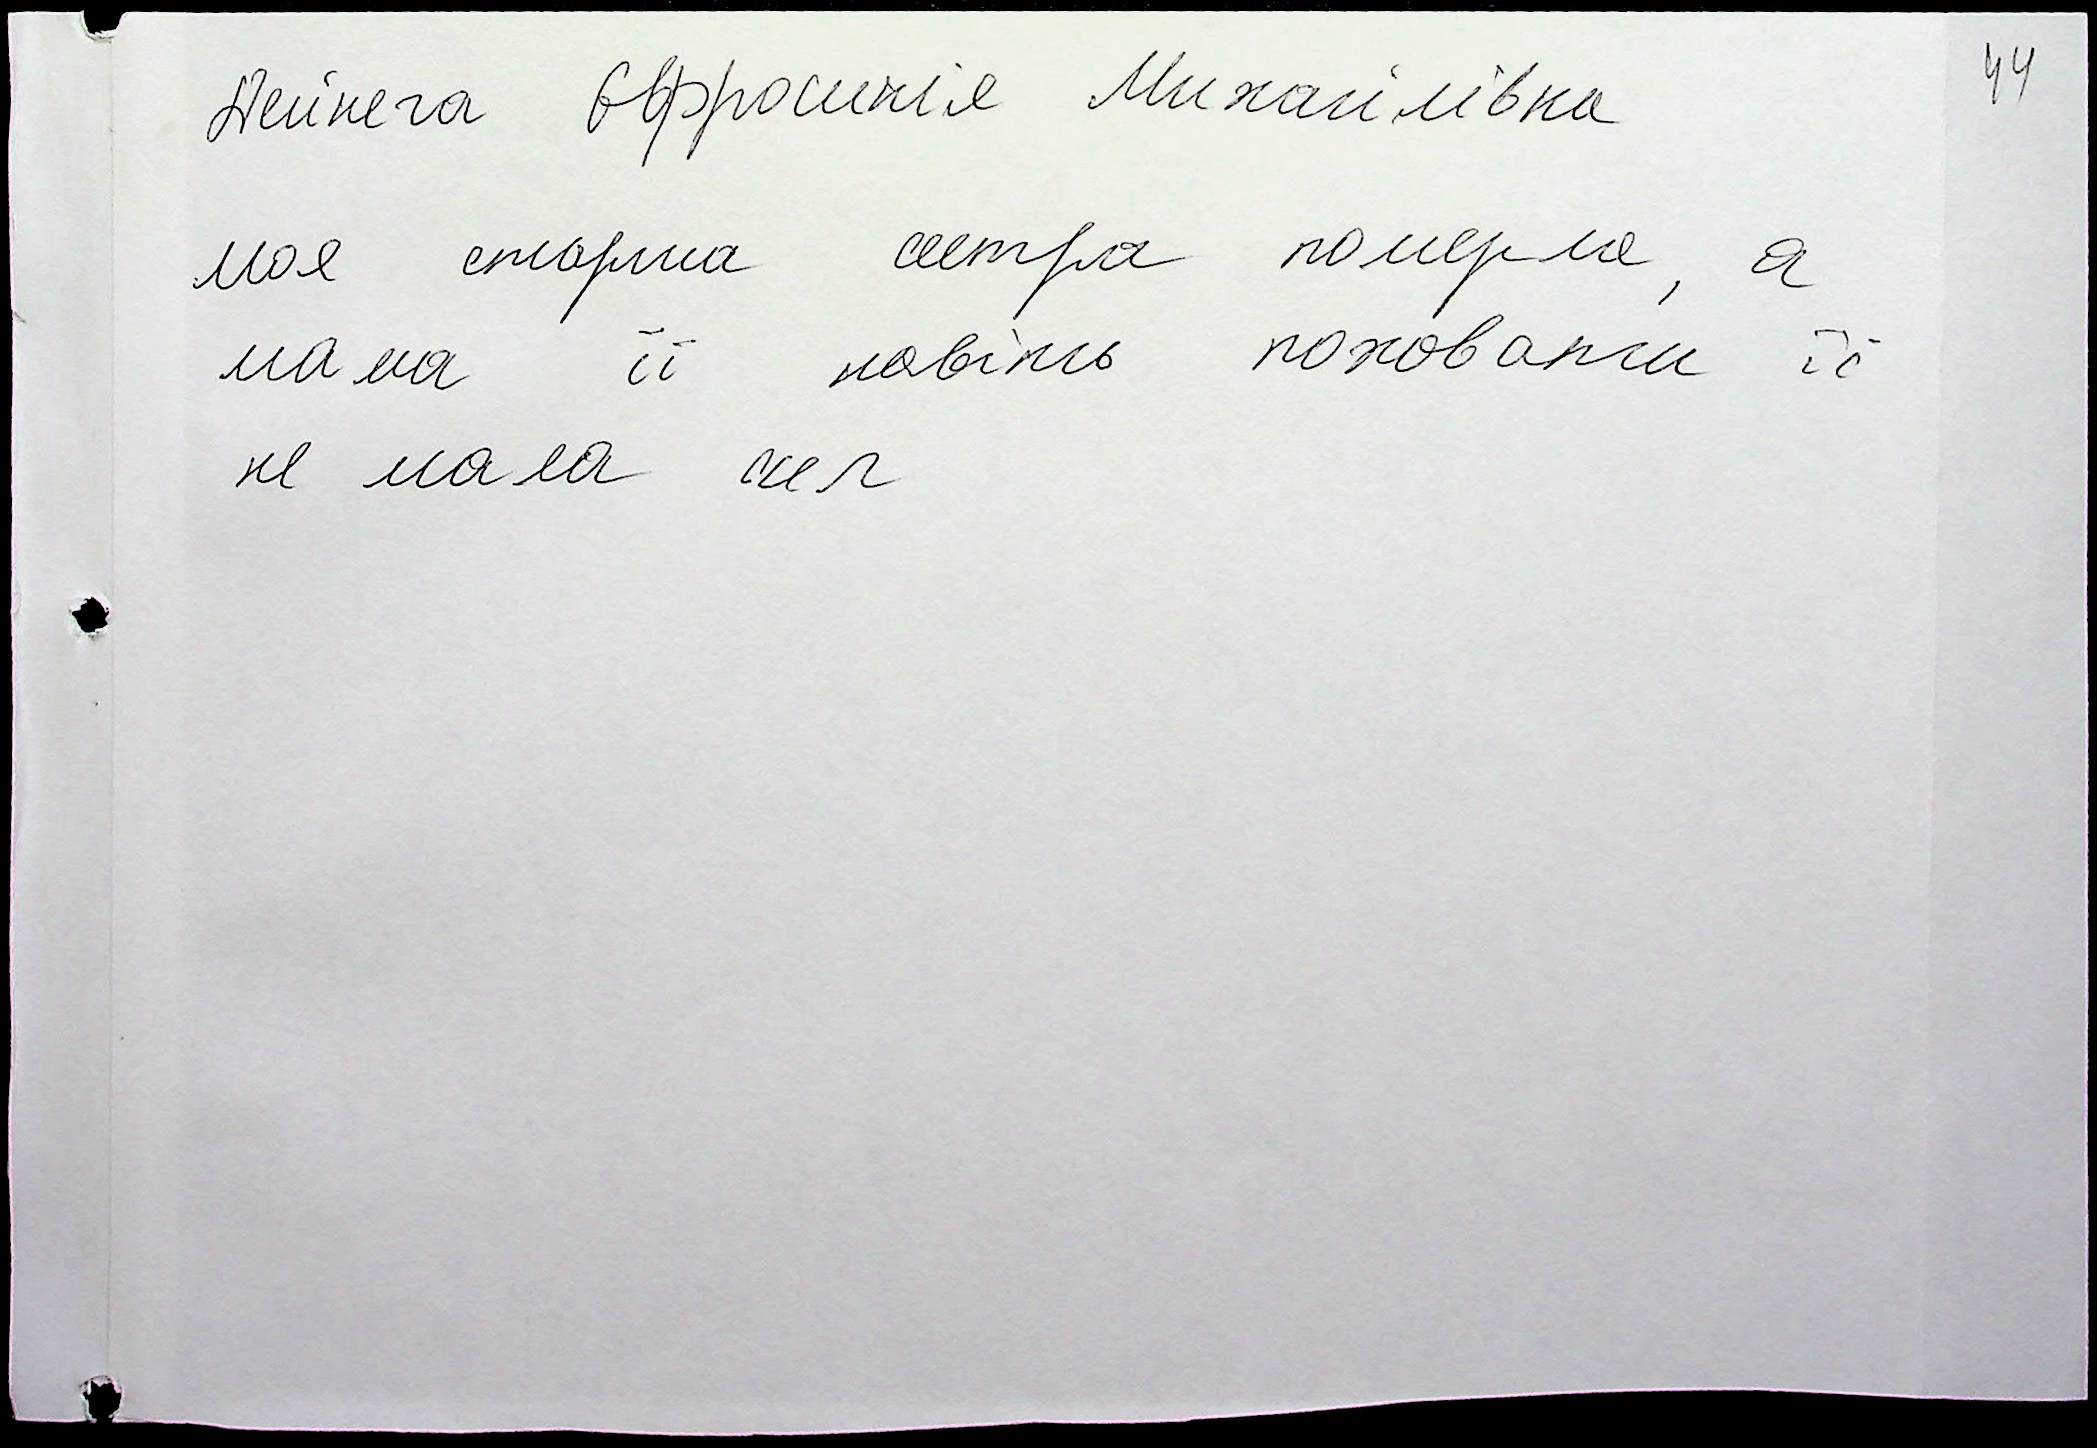 44
Дейнега Євфросинія Михайлівна
моя старша сестра померла, а
мама її навіть поховати її
не мала сил